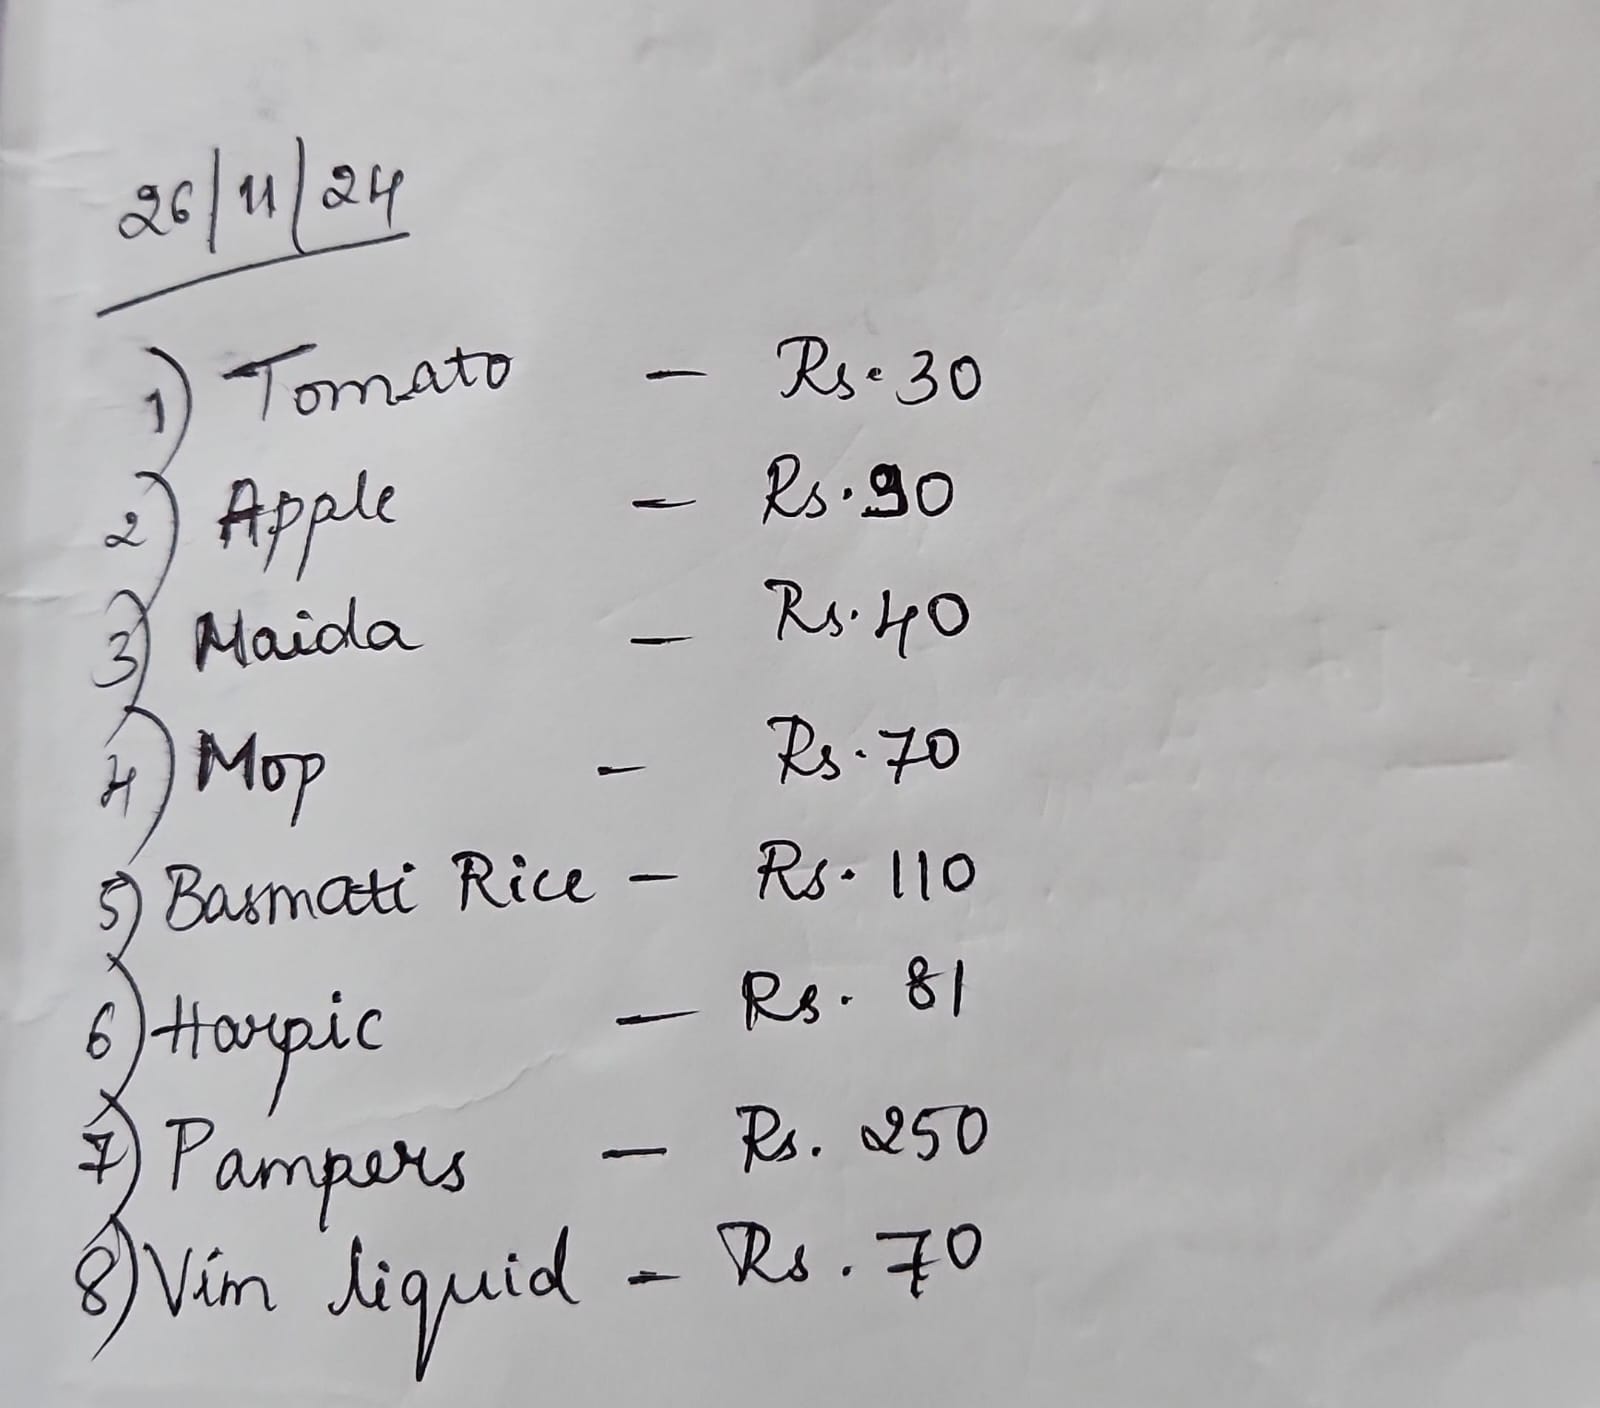 26/11/24
1) Tomato - Rs. 30
2) Apple - Rs. 90
3) Maida - Rs. 40
4) Mop - Rs. 70
5) Basmati Rice - Rs. 110
6) Harpic - Rs. 81
7) Pampers - Rs. 250
8) Vim liquid - Rs. 70